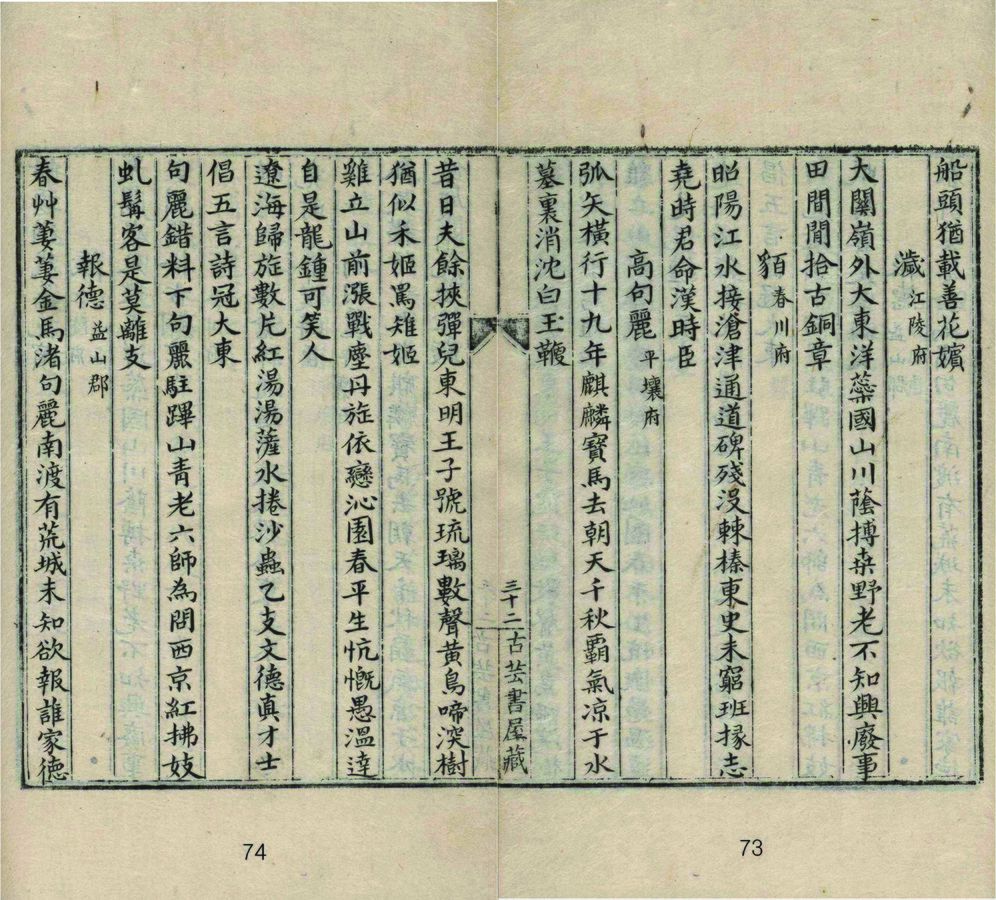 船頭猶載善花嬪
濊 江陵府
大關嶺外大東洋蘂國山川蔭搏桒野老不知興廢事
田間閒拾古銅章
貊 春川府
昭陽江水接滄津通道碑殘沒棘榛東史未窮班掾志
堯時君命漢時臣
高句麗 平壤府
弧矢橫行十九年麒麟寶馬去朝天千秋霸氣凉于水
墓裏消沈白玉鞭
三十二 古芸書屋藏
昔日夫餘挾彈兒東明王子號琉璃數聲黃鳥啼深樹
猶似禾姬罵雉姬
雞立山前漲戰塵丹旌依戀沁園春平生忼慨愚溫達
自是龍鍾可笑人
遼海歸旌數片紅湯湯薩水捲沙蟲乙支文德眞才士
倡五言詩冠大東
句麗錯料下句麗駐蹕山靑老六師為問西京紅拂妓
虬髯客是莫離支
報德 益山郡
春艸萋萋金馬渚句麗南渡有荒城未知欲報誰家德
74
73